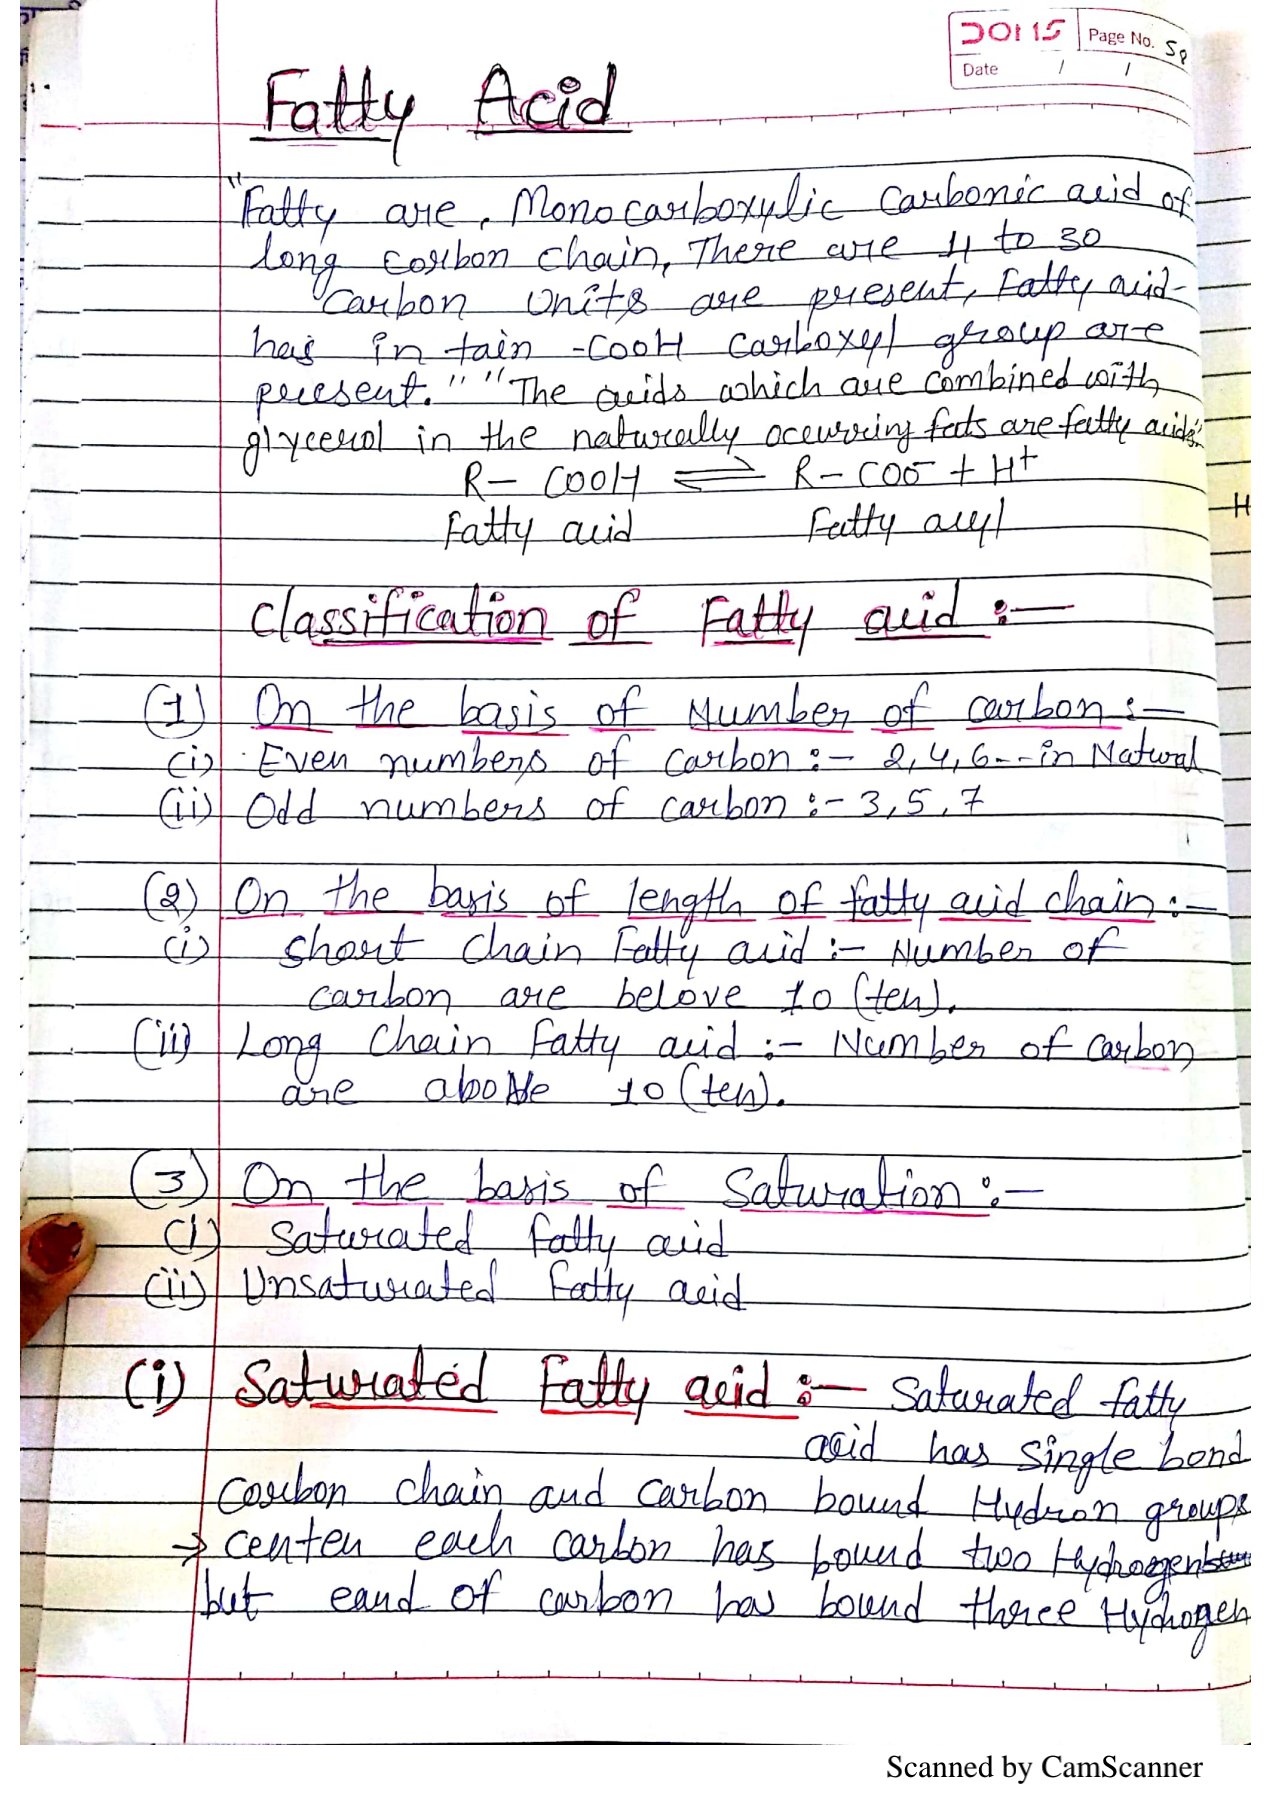 DOMS Page No. 58
Date / /
Fatty Acid
"Fatty are, Monocarboxylic Carbonic acid of
long corbon chain, There are 4 to 30
Carbon Units are present, Fatty acid-
has in tain -COOH Carboxyl group are
present." "The acids which are combined with
glycerol in the naturally ocewrring fats are fatty acids"
R- COOH ⇌ R-COO⁻ + H⁺
Fatty acid Fatty acyl
H
Classification of Fatty acid :—
(1) On the basis of Number of carbon :—
(i) Even numbers of carbon :- 2,4,6-- in Natural
(ii) Odd numbers of carbon :- 3,5,7
(2) On the basis of length of fatty acid chain :—
(i) short chain Fatty acid :- Number of
carbon are belove 10 (ten).
(ii) Long Chain Fatty acid :- Number of Carbon
are above 10 (ten).
(3) On the basis of Saturation :—
(i) Saturated fatty acid
(ii) Unsaturated Fatty acid
(i) Saturated Fatty acid :— Saturated fatty
acid has single bond
Corbon chain and Carbon bound Hydron groups
→ centen each carbon has bound two Hydrogen
but eand of carbon has bound three Hydrogen
Scanned by CamScanner